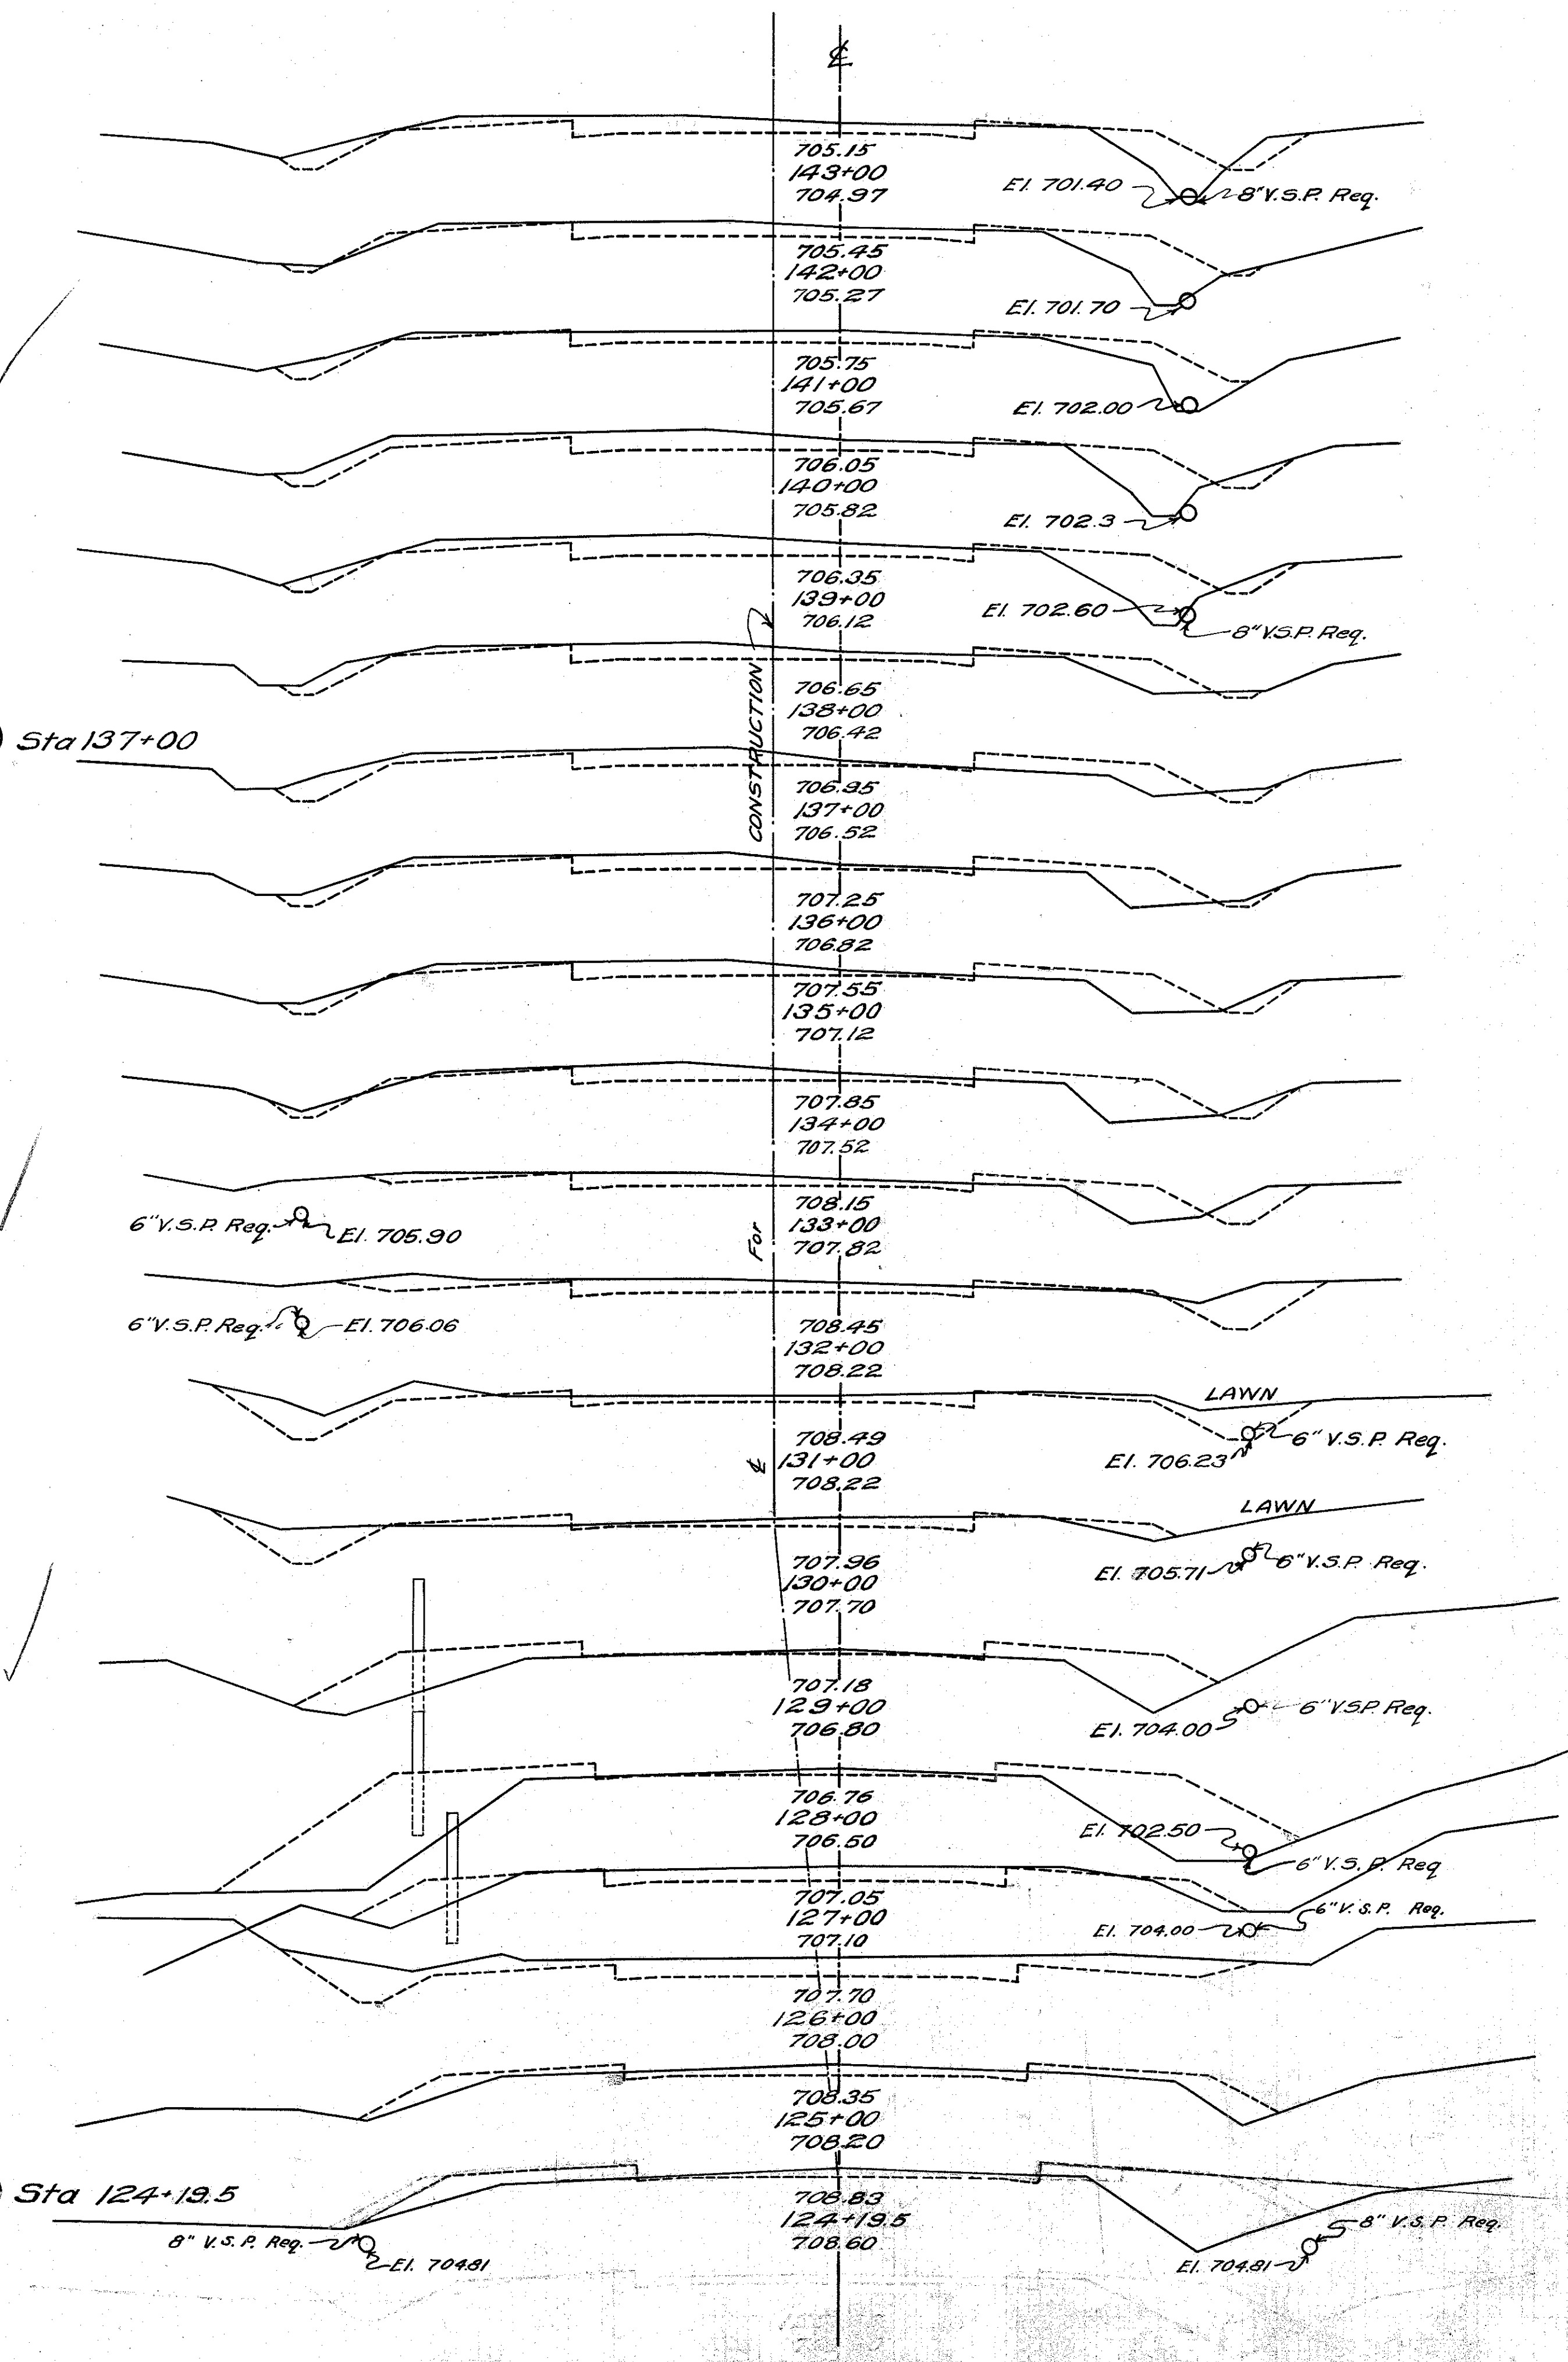 ℄
705.15
143+00
704.97
El. 701.40
8" V.S.P. Req.
705.45
142+00
705.27
El. 701.70
705.75
141+00
705.67
El. 702.00
706.05
140+00
705.82
El. 702.3
706.35
139+00
706.12
El. 702.60
8" V.S.P. Req.
706.65
138+00
706.42
Sta 137+00
706.95
137+00
706.52
CONSTRUCTION
707.25
136+00
706.82
707.55
135+00
707.12
707.85
134+00
707.52
708.15
133+00
707.82
6" V.S.P. Req.
El. 705.90
For
708.45
132+00
708.22
6" V.S.P. Req.
El. 706.06
LAWN
708.49
131+00
708.22
℄
El. 706.23
6" V.S.P. Req.
LAWN
707.96
130+00
707.70
El. 705.71
6" V.S.P. Req.
707.18
129+00
706.80
El. 704.00
6" V.S.P. Req.
706.76
128+00
706.50
El. 702.50
6" V.S.P. Req
707.05
127+00
707.10
El. 704.00
6" V.S.P. Req.
707.70
126+00
708.00
708.35
125+00
708.20
Sta 124+19.5
708.83
124+19.5
708.60
8" V.S.P. Req.
El. 704.81
8" V.S.P. Req.
El. 704.81